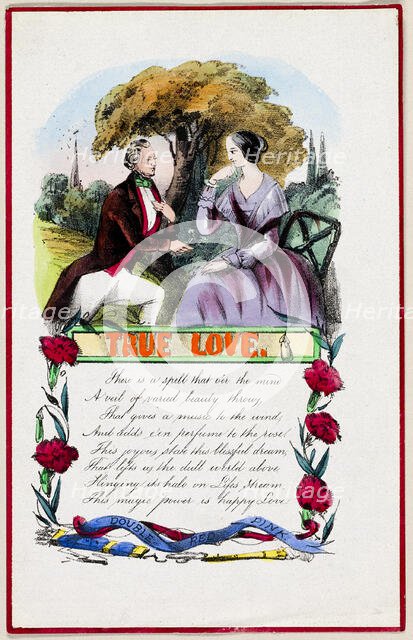 TRUE LOVE.
There is a spell that o'er the mind
A veil of varied beauty throws,
That gives a music to the wind,
And adds e'en perfume to the rose!
This joyous state this blessful dream,
That lifts us the dull world above
Hinging its halo on Life's Stream
This magic power is happy Love
DOUBLE RED PINK
Heritage
Heritage
Heritage
Heritage
Heritage
Heritage